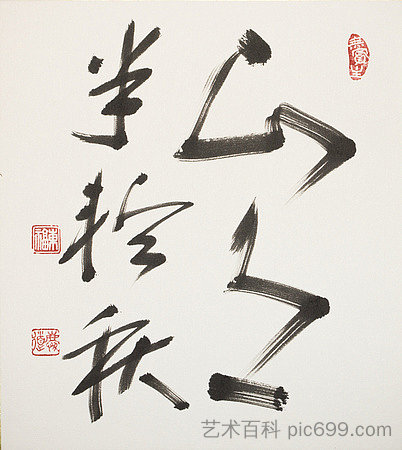 山月
半輪秋
艺术百科 pic699.com